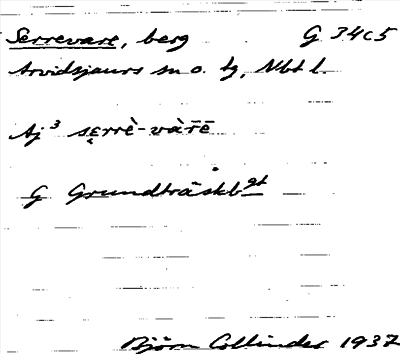 Serrevare, berg G 34c5
Arvidsjaurs sn o. tg, Nbt l.
Aj³ sę̀rrè-vàrē
G Grundträskbgt
Björn Collinder 1937